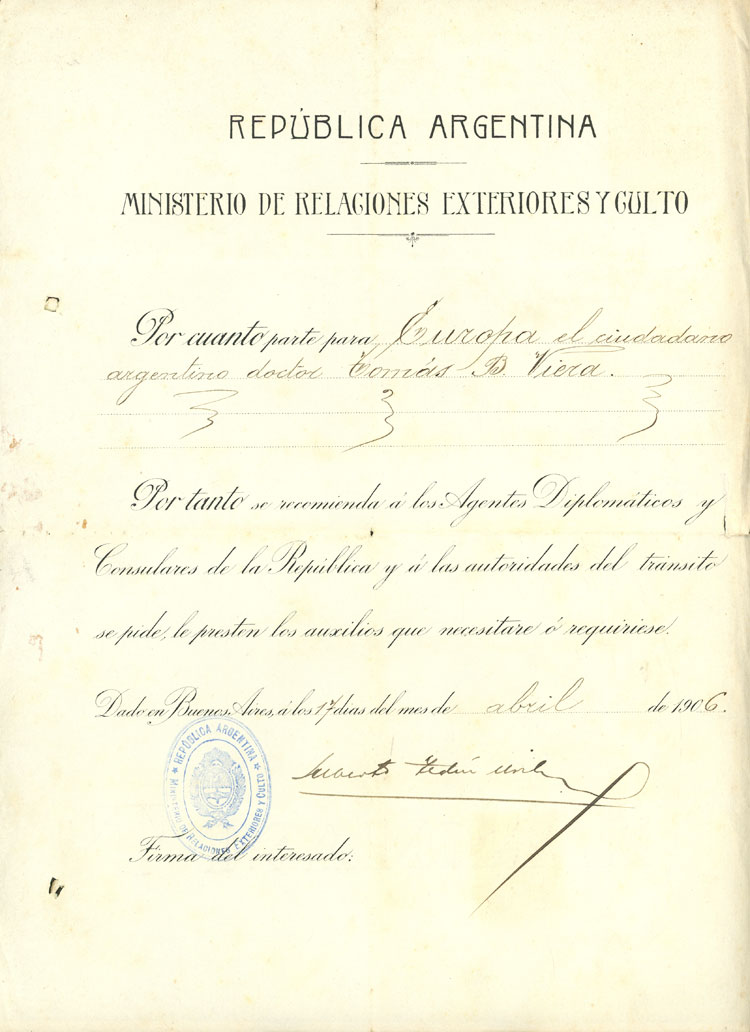 REPÚBLICA ARGENTINA
MINISTERIO DE RELACIONES EXTERIORES Y CULTO
Por cuanto parte para Europa el ciudadano
argentino doctor Tomás B. Viera.
Por tanto se recomienda á los Agentes Diplomáticos y
Consulares de la República y á las autoridades del tránsito
se pide, le presten los auxilios que necesitare ó requiriese.
Dado en Buenos Aires, á los 17 dias del mes de abril de 1906.
★ REPÚBLICA ARGENTINA ★
MINISTERIO DE RELACIONES EXTERIORES Y CULTO
Firma del interesado: